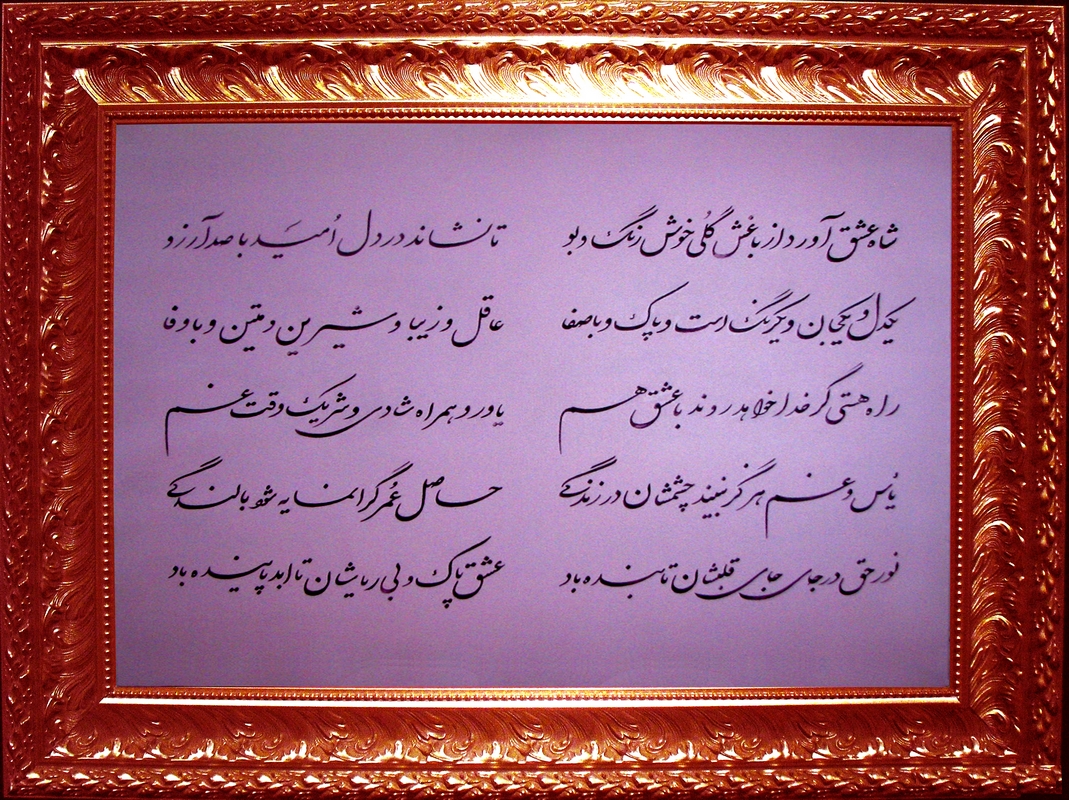 شاه عشق آورد از باغش گلی خوش رنگ و بو تا نشاند در دل اُمید با صد آرزو
یکدل و یکجان و یکرنگ است و پاک و با صفا عاقل و زیبا و شیرین و متین و با وفا
راه هستی گر خدا خواهد روند با عشق هم یاور و همراه شادی و شریک وقت غم
یأس و غم هرگز نبیند چشمشان در زندگی حاصل عُمر گرانمایه بالندگی
نور حق در جای جای قلبشان تابنده باد عشق پاک و بی ریاشان تا ابد پاینده باد